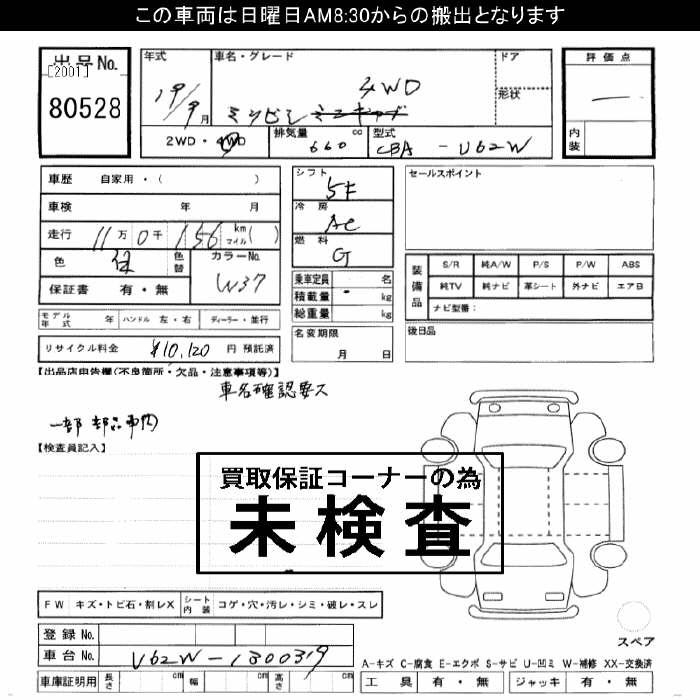 この車両は日曜日AM8:30からの搬出となります
出品No.
[2001]
80528
年式
19/9月
車名・グレード
4WD
ミツビシ ミニキャブ
ドア
形状
2WD・4WD
排気量 660 cc
型式 CBA - U62W
評価点
—
内装
車歴 自家用・( )
車検 年 月
走行 11万0千156 km マイル( )
色 白 色替 カラーNo. W37
保証書 有・無
モデル年式 年 ハンドル 左・右 ディーラー・並行
リサイクル料金 ¥10,120 円 預託済
シフト 5F
冷房 AC
燃料 G
乗車定員 名
積載量 - kg
総重量 kg
名変期限
月 日
セールスポイント
装備品
S/R 純A/W P/S P/W ABS
純TV 純ナビ 革シート 外ナビ エアB
ナビ型番:
後日品
【出品店申告欄(不良箇所・欠品・注意事項等)】
車名確認要ス
一部 部品車内
【検査員記入】
買取保証コーナーの為
未検査
FW キズ・トビ石・割レX シート内装 コゲ・穴・汚レ・シミ・破レ・スレ
登録No.
車台No. U62W-1300319
車庫証明用 長さ cm 幅 cm 高さ cm
スペア
A-キズ C-腐食 E-エクボ S-サビ U-凹ミ W-補修 XX-交換済
工具 有・無 ジャッキ 有・無